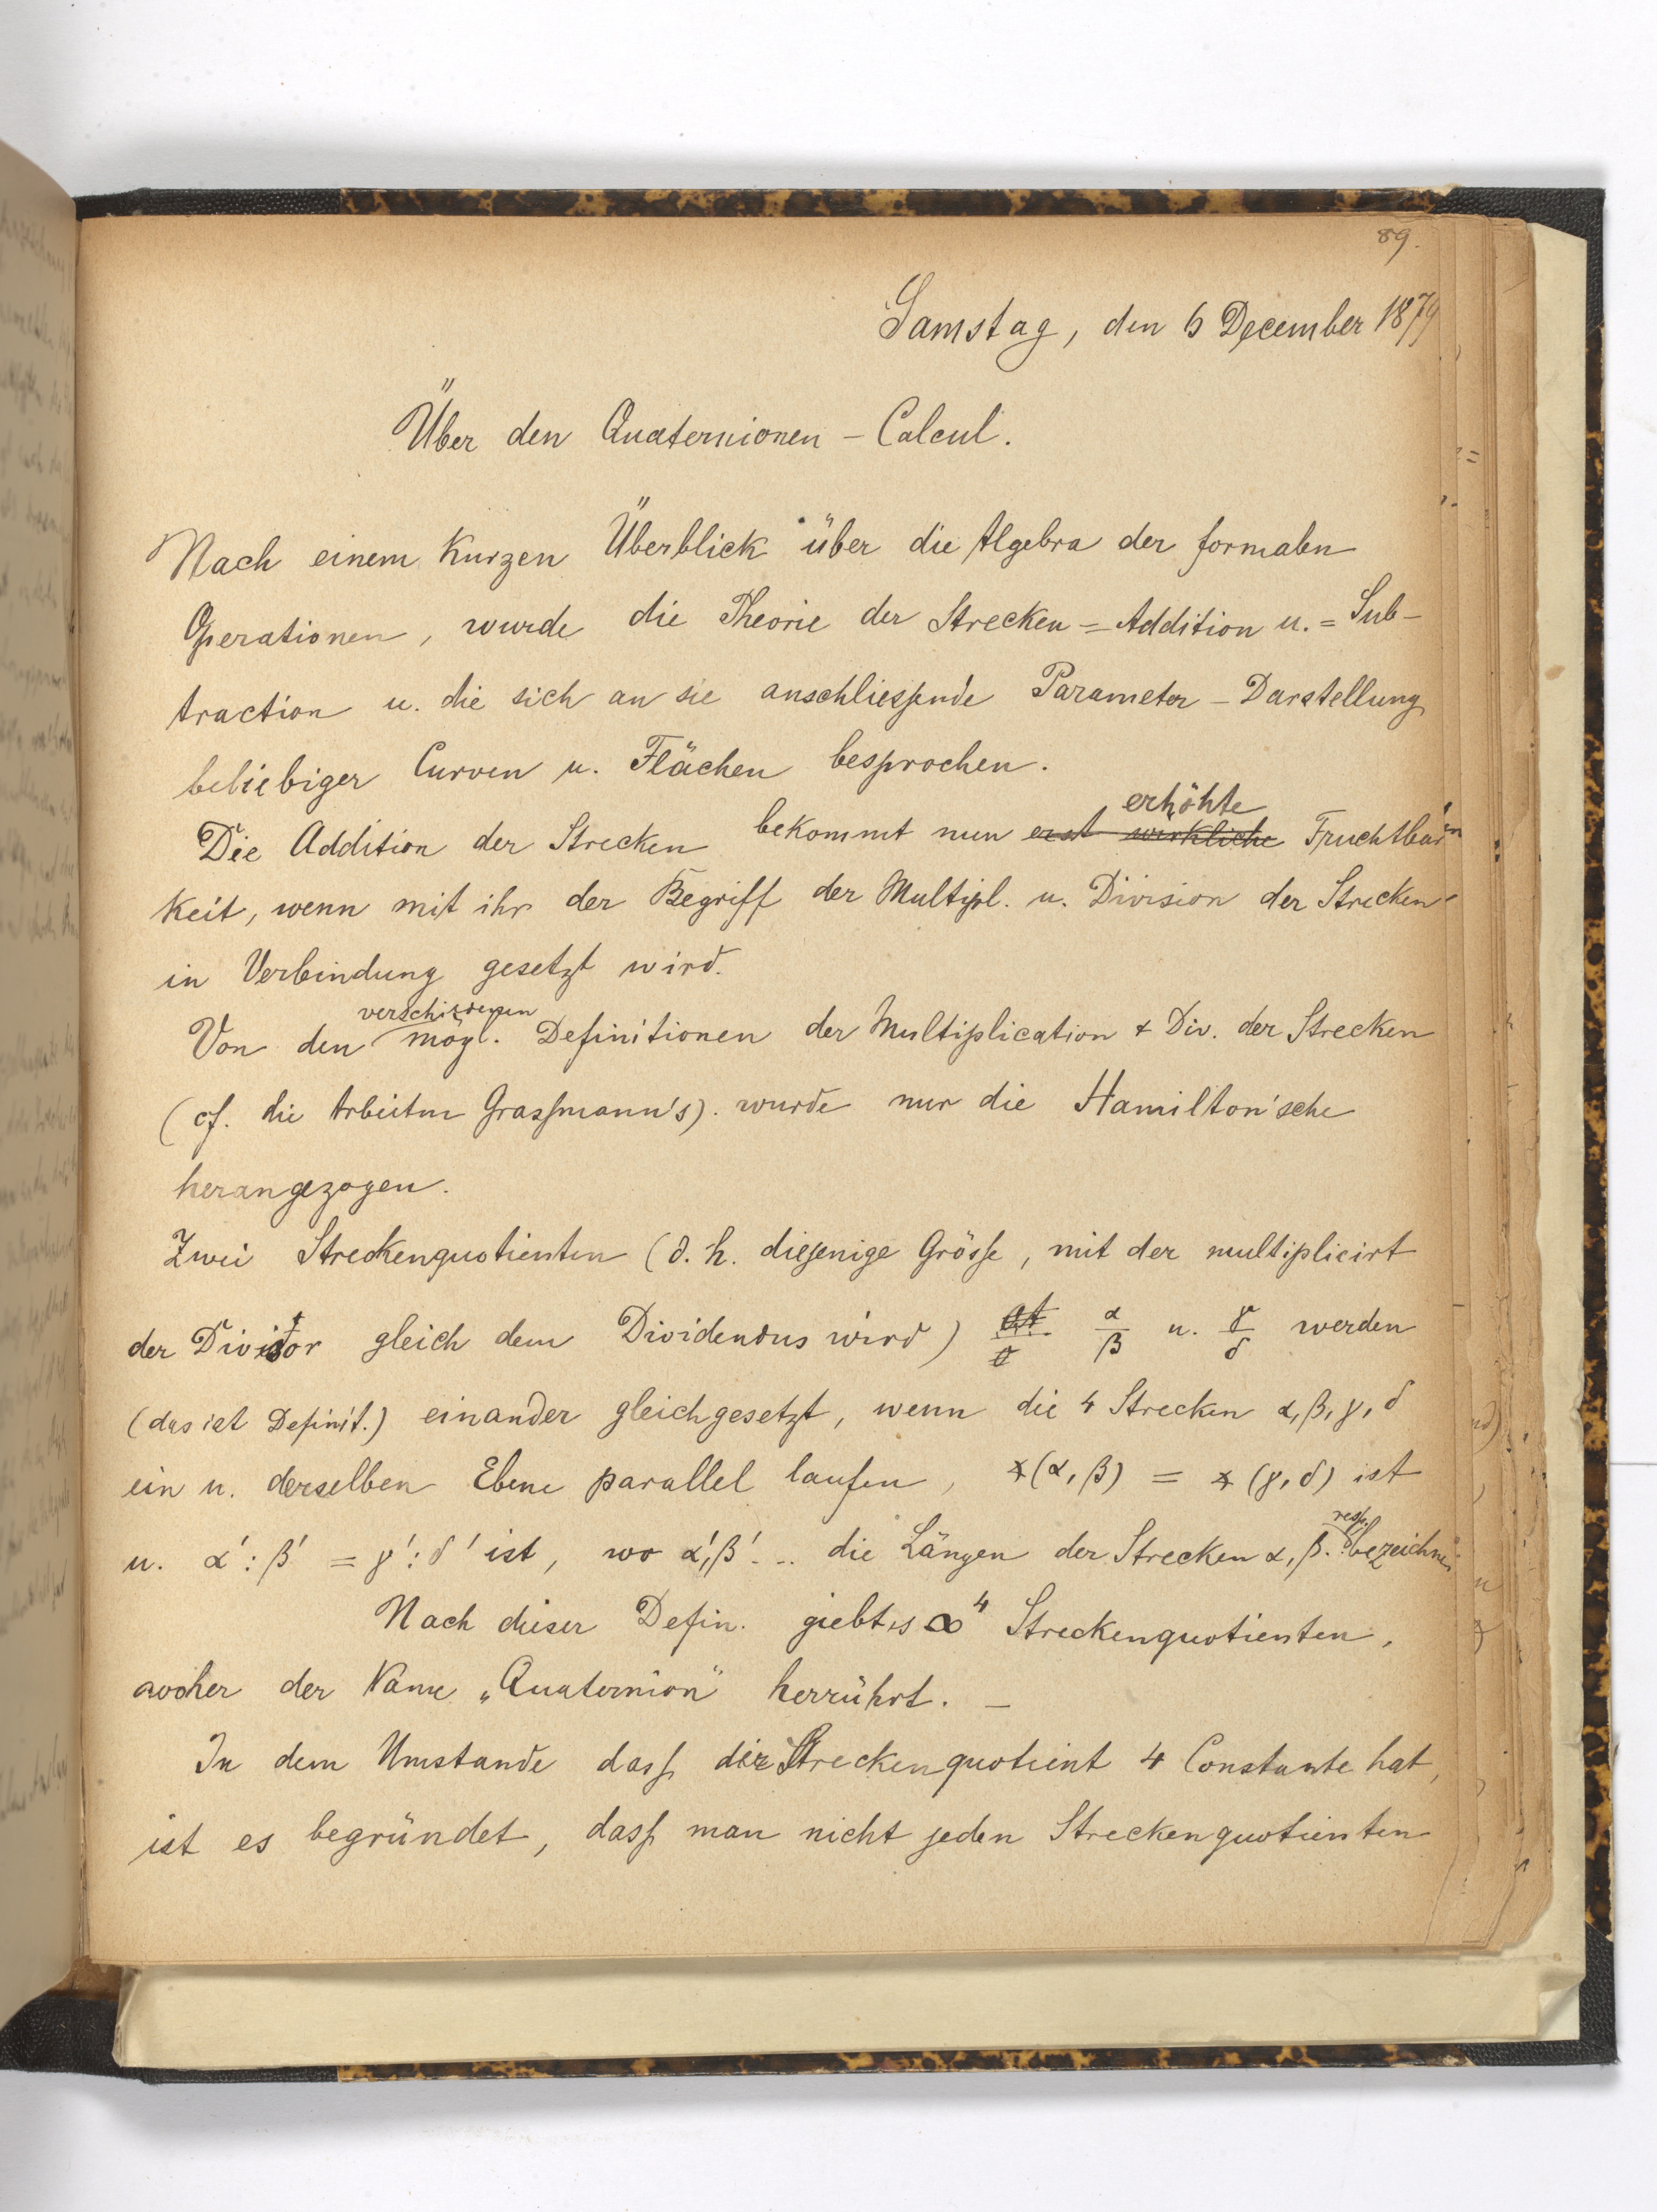 89.
Samstag, den 6 December 1879
Über den Quaternionen - Calcul.
Nach einem kurzen Überblick über die Algebra der formalen
Operationen, wurde die Theorie der Strecken = Addition u. = Sub-
traction u. die sich an sie anschliessende Parameter - Darstellung
beliebiger Curven u. Flächen besprochen.
erhöhte
Die Addition der Strecken bekommt nun erst wirkliche Fruchtbar
keit, wenn mit ihr der Begriff der Multipl. u. Division der Strecken
in Verbindung gesetzt wird.
verschiedenen
Von den mögl. Definitionen der Multiplication & Div. der Strecken
(cf. die Arbeiten Grassmann's). wurde nur die Hamilton'sche
herangezogen.
Zwei Streckenquotienten (d. h. diejenige Grösse, mit der multiplicirt
der Divisor gleich dem Dividendus wird) α/β u. γ/δ werden
(das ist Definit.) einander gleichgesetzt, wenn die 4 Strecken α, β, γ, δ
ein u. derselben Ebene parallel laufen, ∢(α, β) = ∢(γ, δ) ist
resp.
u. α' : β' = γ' : δ' ist, wo α', β' ... die Längen der Strecken α, β.. bezeichnen
Nach dieser Defin. giebt es ∞⁴ Streckenquotienten,
woher der Name „Quaternion" herrührt. —
In dem Umstande dass der Streckenquotient 4 Constante hat,
ist es begründet, dass man nicht jeden Streckenquotienten